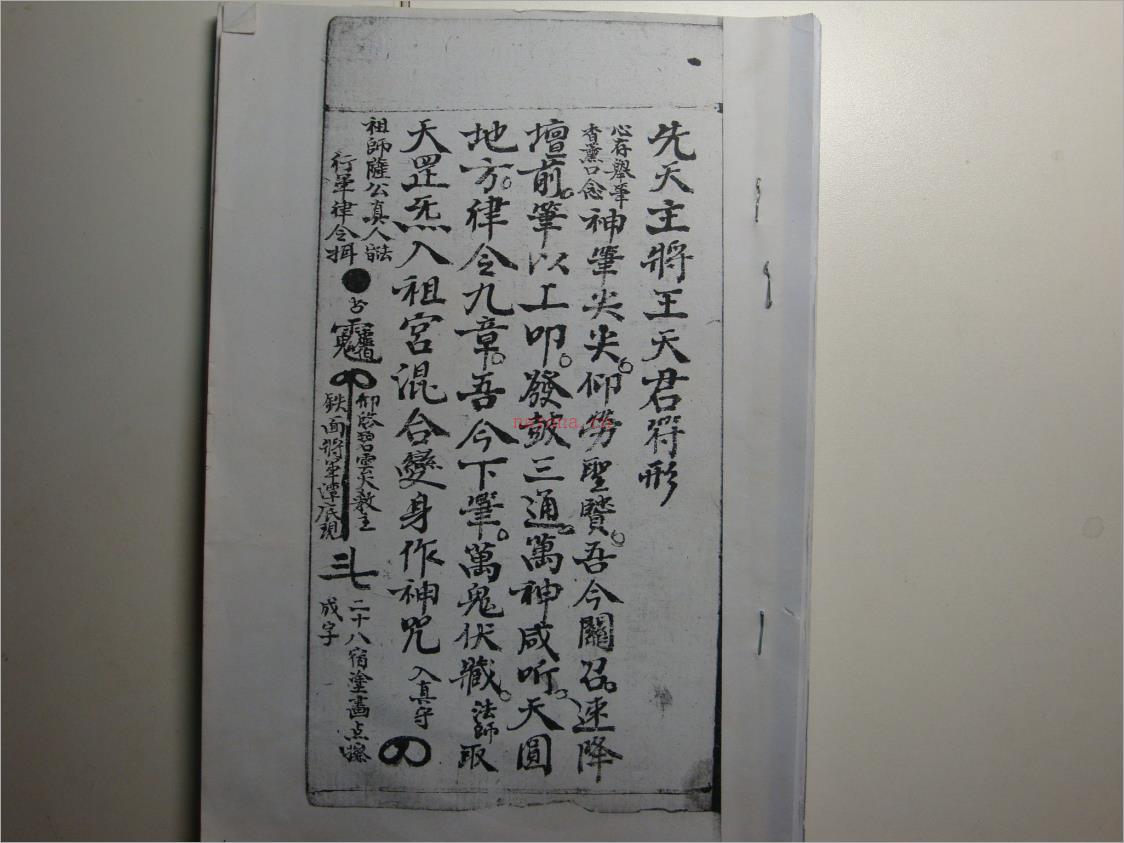 先天主將王天君符形
心存舉筆
香薰口念
神筆尖尖。仰勞聖賢。吾今關召。速降
壇前。筆以工叩。發鼓三通。萬神咸听。天圓
地方。律令九章。吾今下筆。萬鬼伏藏。法師取
天罡炁入祖宮混合變身作神咒 入真守
祖師薩公真人
行 律令
书
仰啓碧雲大教主
鉄面將軍潭底現
二十八宿塗畵点
成字